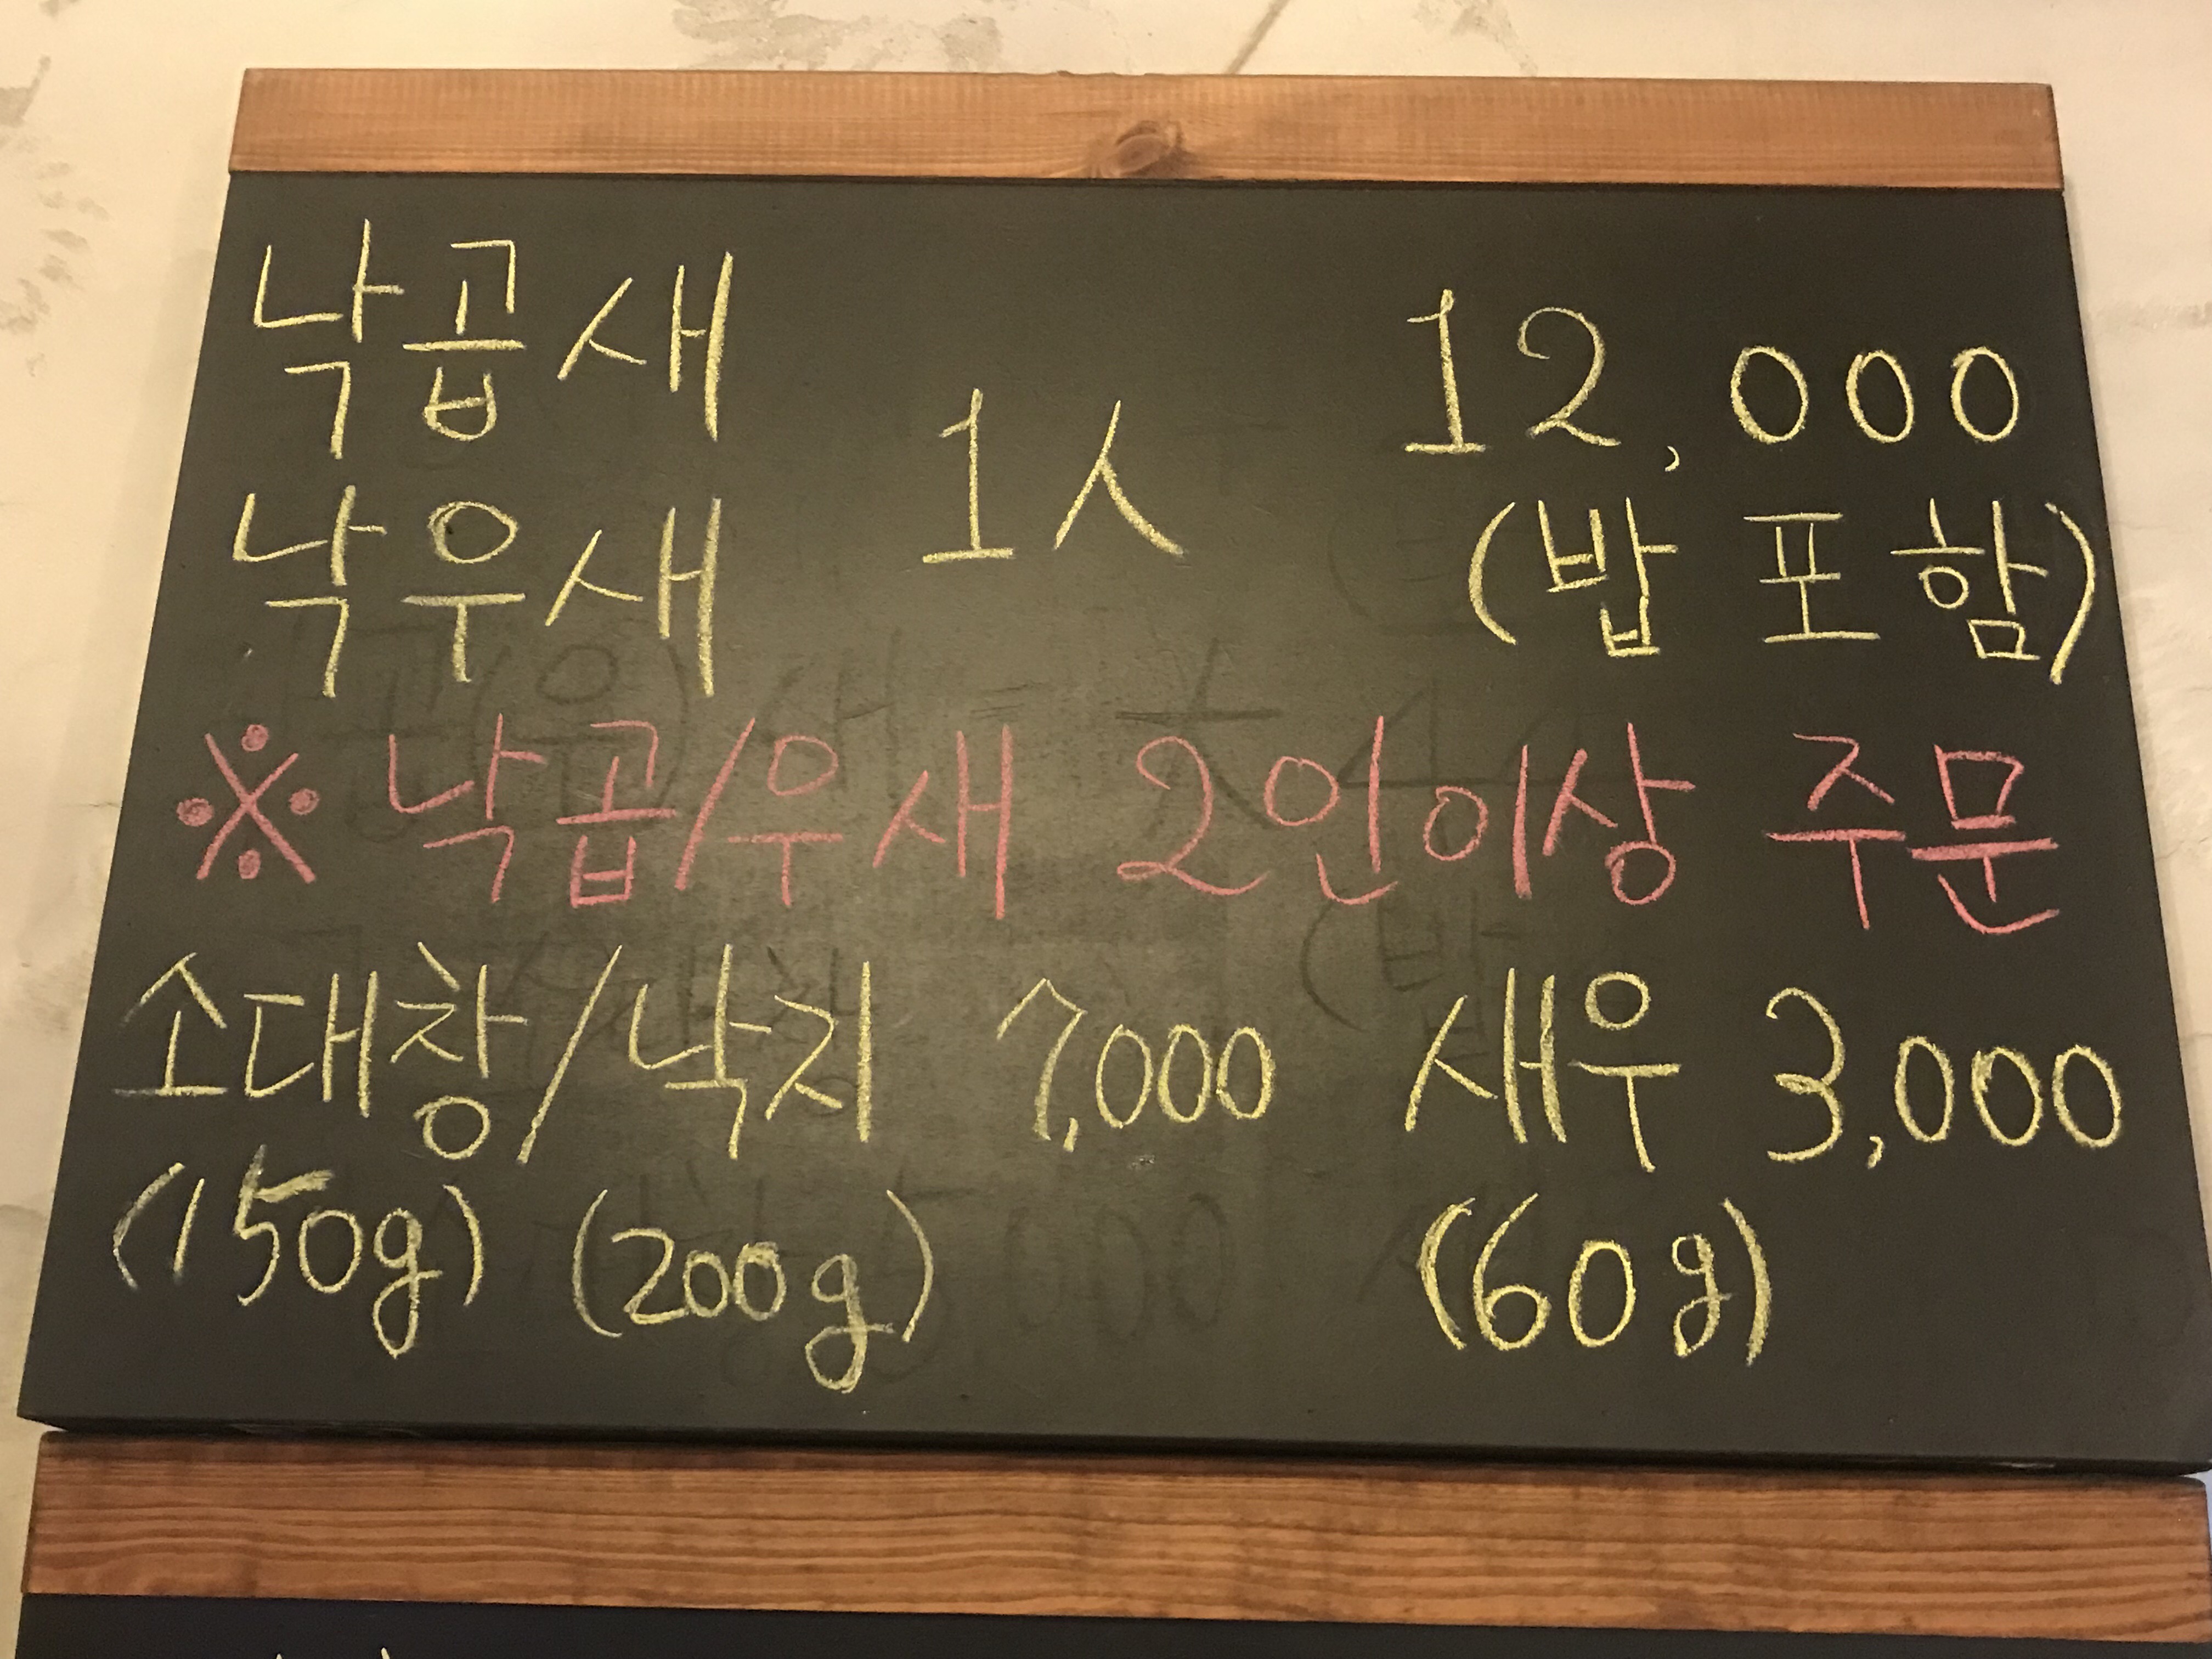 낙곱새 1人 12,000
낙우새 (밥 포함)
※ 낙곱/우새 2인이상 주문
소대창/낙지 7,000 새우 3,000
(150g) (200g) (60g)